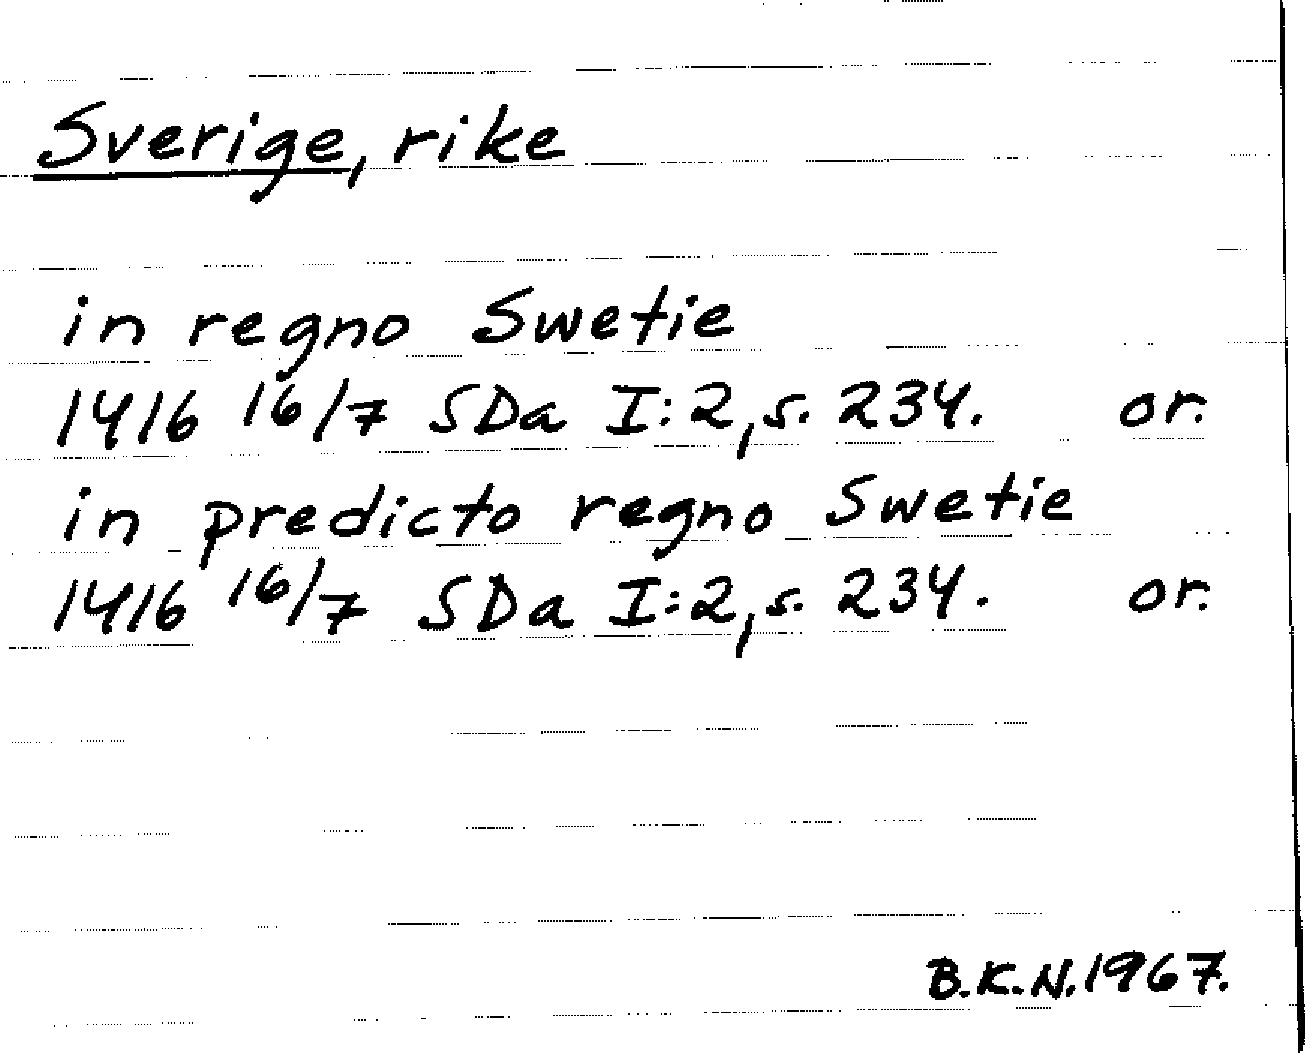 Sverige, rike
in regno Swetie
1416 16/7 SDa I:2, s. 234. or.
in predicto regno Swetie
1416 16/7 SDa I:2, s. 234. or.
B.K.N. 1967.